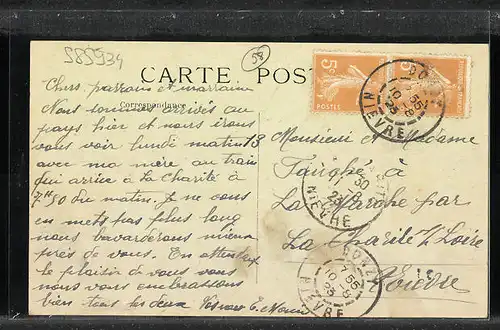 585934
58
CARTE POS
Correspondance
Chers parrains et marraine
Nous sommes arrivés au
pays hier et nous irons
vous voir lundi matin 13
avec ma mère au train
qui arrive à la Charité à
7H50 du matin. Je ne vous
en mets pas plus long
nous bavarderons mieux
près de vous. En attendant
le plaisir de vous voir
nous vous embrassons
bien tous les deux
Monsieur et Madame
à
La Marche par
La Charité s/ Loire
Nièvre
5c
POSTES
5
DONZY
10 -8
25
NIEVRE
NIEVRE
DONZY
10 -8
25
NIEVRE